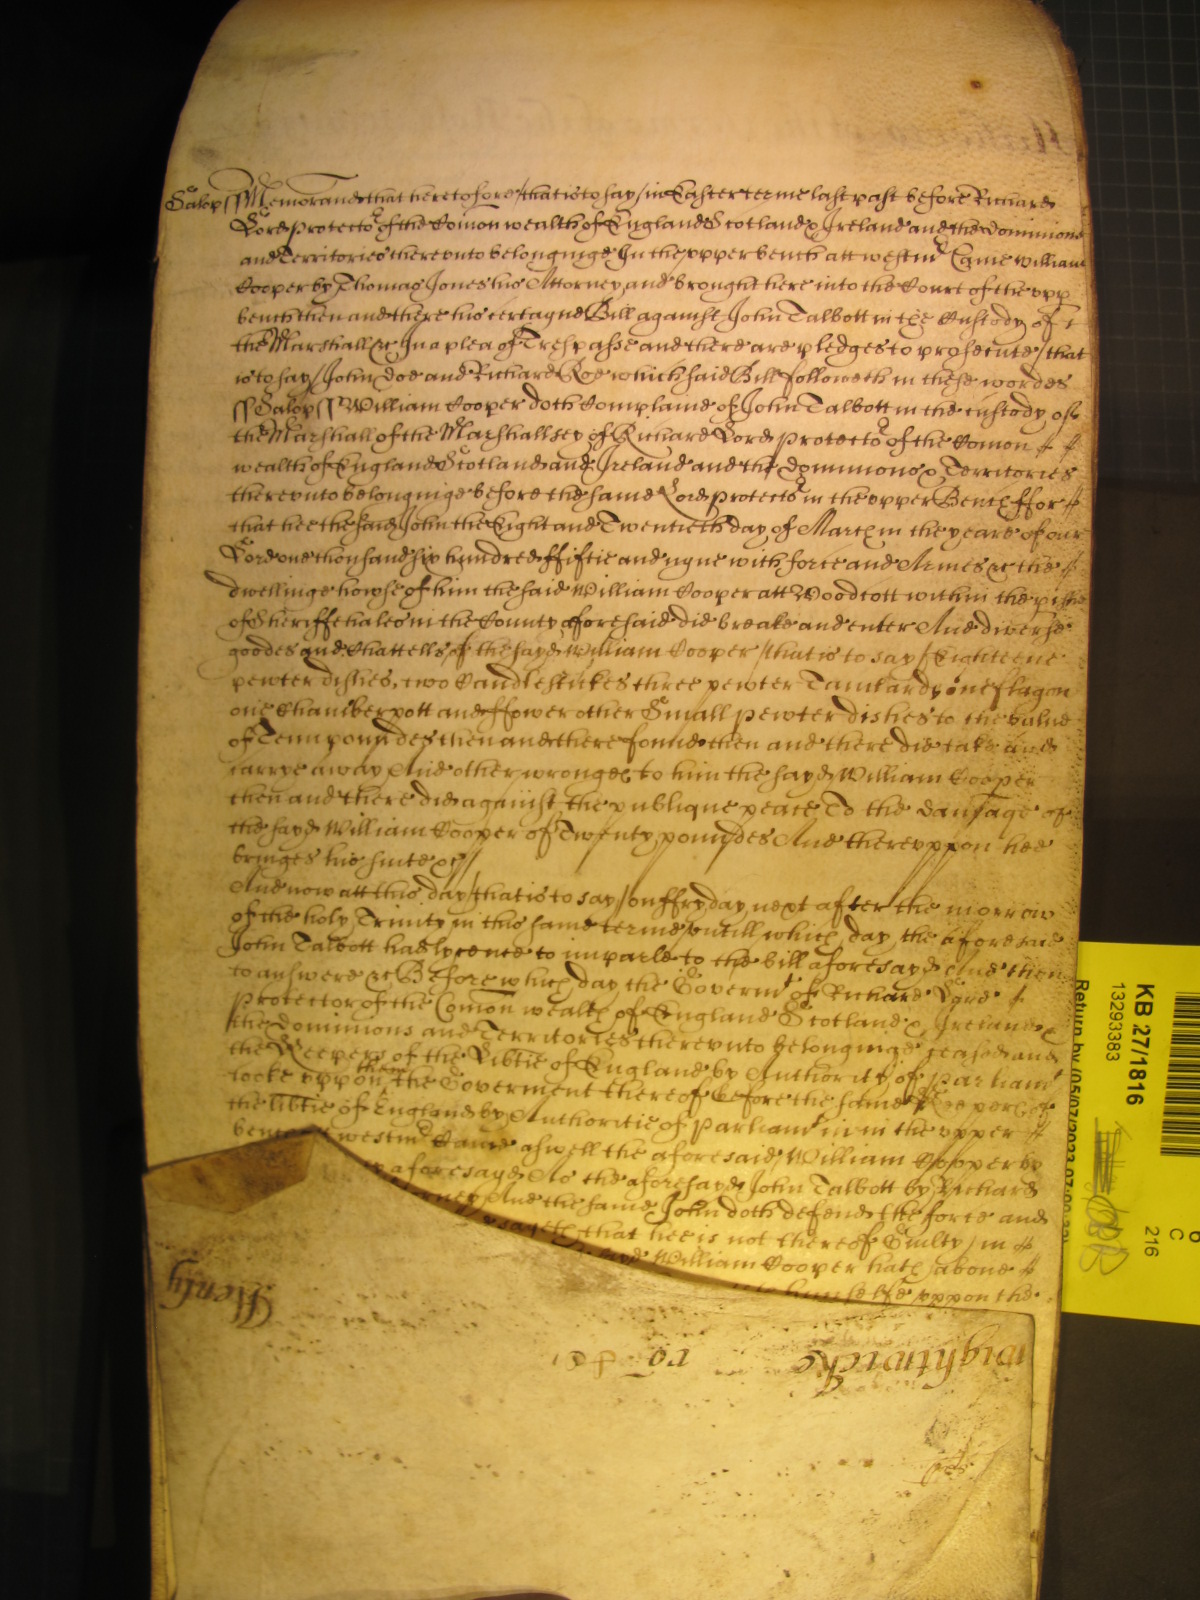 Salop ss Memorand that heretofore / that is to say / in Easter terme last past before Richard
Lord Protector of the Comon wealth of England Scotland & Ireland and the Dominions
and Territories therevnto belonginge In the vpper bench att westmr Came William
Cooper by Thomas Jones his Attorney and brought here into the Court of the vpp
bench then and there his certayne Bill against John Talbott in the Custody of
the Marshall &c In a plea of Trespasse and there are pledges to prosecute / that
is to say / John Doe and Richard Roe which said Bill followeth in these wordes
ss Salop ss William Cooper doth Complaine of John Talbott in the custody of
the Marshall of the Marshallsey of Richard Lord Protector of the Comon
wealth of England Scotland and Ireland and the dominions & Territories
therevnto belonginge before the same Lord Protector in the vpper Bench ffor
that hee the said John the Eight and Twentieth day of March in the yeare of our
Lord one thousand six hundred ffiftie and nyne with force and Armes &c the
dwellinge howse of him the said William Cooper att Woodcott within the pishe
of Sheriffehales in the County aforesaid did breake and enter And diverse
goodes and Chattells of the sayd William Cooper / that is to say / Eighteene
pewter dishes, two Candlestickes three pewter Tanckards one flagon
one Chamberpott and ffower other Small pewter dishes to the value
of Tenn poundes then and there found then and there did take and
carrye away And other wronges to him the sayd William Cooper
then and there did against the publique peace To the damage of
the sayd William Cooper of Twenty poundes And therevppon hee
bringes his suite &c
And now att this day / that is to say / on ffryday next after the morrow
of the holy Trinity in this same terme / vntill which day the aforesaid
John Talbott had lycence to imparle to the bill aforesayd And then
to answere &c Before which day the Governmt of Richard Lord
Protector of the Comon wealth of England Scotland & Ireland &
the dominions and Territories therevnto belonginge ceased and
the Keepers of the Libtie of England by Authority of Parliamt
tooke vppon them the Goverment thereof before the same Keepers of
the libtie of England by Authoritie of Parliamt in the vpper
bench westmr Came aswell the aforesaid William Cooper by
aforesayd As the aforesayd John Talbott by Richard
And the same John doth defend the force and
sayeth that hee is not thereof Guilty / in
William Cooper hath / above
himselfe vppon the
Henly
wightwicke ro
KB 27/1816
13293383
216
C
6
Return by (05/07/2023